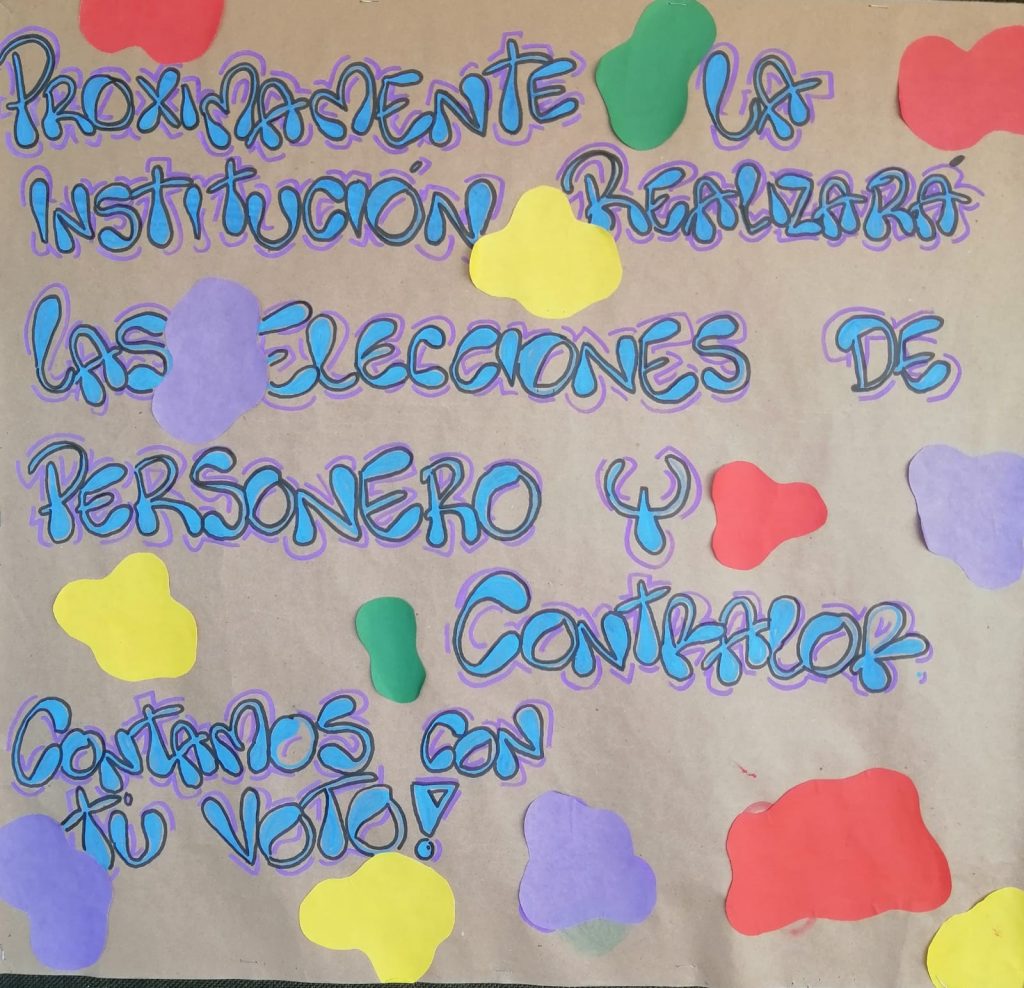 PROXIMAMENTE LA
INSTITUCIÓN REALIZARÁ
LAS ELECCIONES DE
PERSONERO Y
CONTRALOR.
CONTAMOS CON
TÚ VOTO!